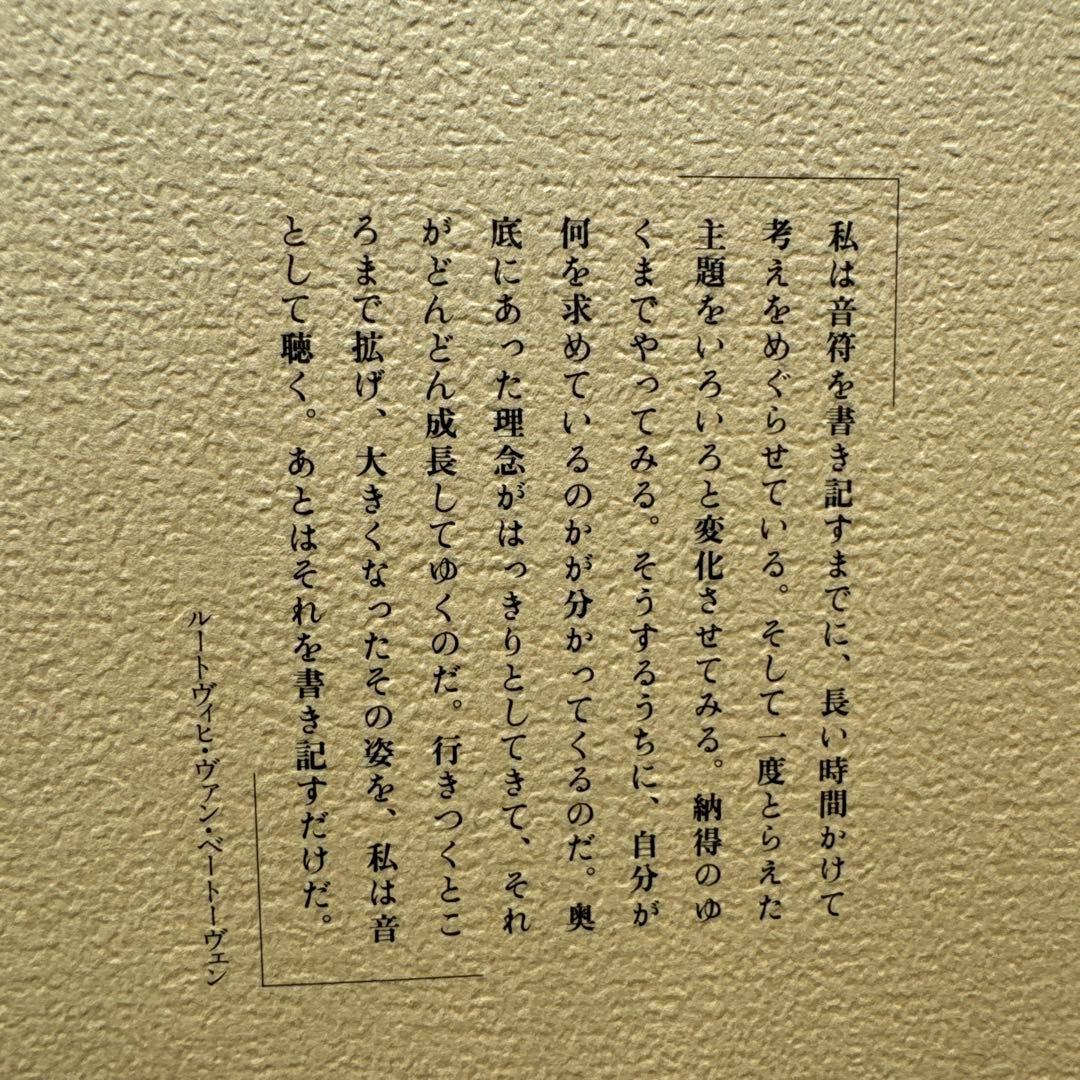 私は音符を書き記すまでに、長い時間かけて
考えをめぐらせている。そして一度とらえた
主題をいろいろと変化させてみる。納得のゆ
くまでやってみる。そうするうちに、自分が
何を求めているのかが分かってくるのだ。奥
底にあった理念がはっきりとしてきて、それ
がどんどん成長してゆくのだ。行きつくとこ
ろまで拡げ、大きくなったその姿を、私は音
として聴く。あとはそれを書き記すだけだ。
ルートヴィヒ・ヴァン・ベートーヴェン